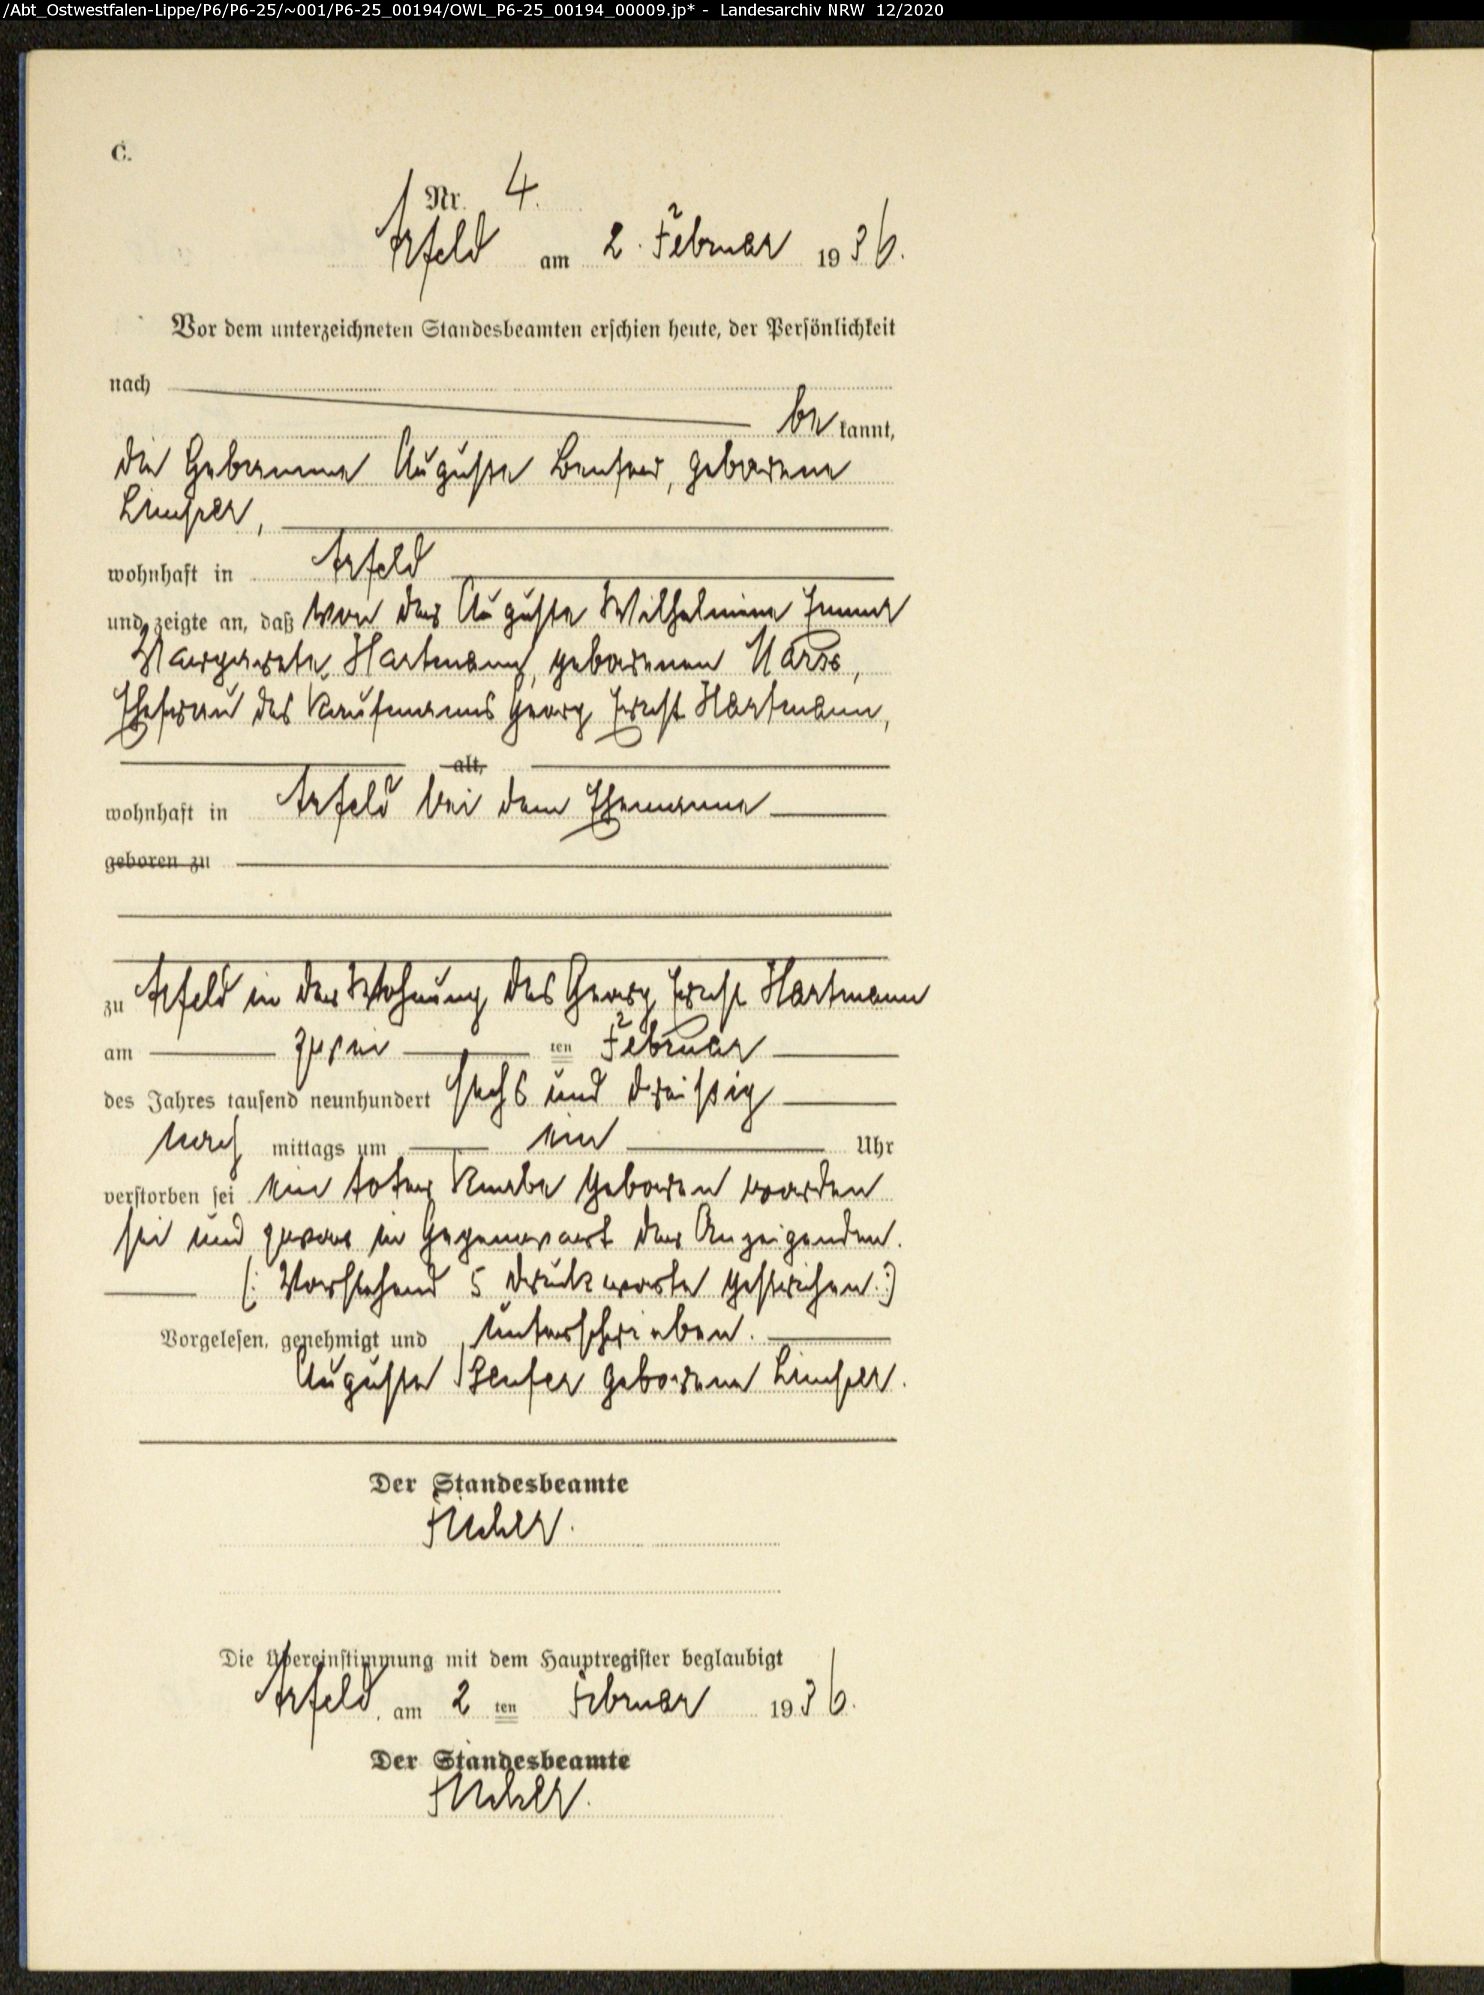 /Abt_Ostwestfalen-Lippe/P6/P6-25/~001/P6-25_00194/OWL_P6-25_00194_00009.jp* - Landesarchiv NRW 12/2020
C.
Nr. 4.
Arfeld am 2. Februar 1936.
Vor dem unterzeichneten Standesbeamten erschien heute, der Persönlichkeit
nach
be kannt,
die Hebamme Auguste Benfer, geborene
wohnhaft in Arfeld
und zeigte an, daß von der Auguste Wilhelmine Emma
Margarete Hartmann, geborenen
Ehefrau des Kaufmanns Georg Ernst Hartmann,
alt,
wohnhaft in Arfeld bei dem Ehemanne
geboren zu
zu Arfeld in der Wohnung des Georg Ernst Hartmann
am zwei ten Februar
des Jahres tausend neunhundert sechs und dreißig
nach mittags um ein Uhr
verstorben sei ein toter Knabe geboren worden
sei und zwar in Gegenwart der Anzeigenden.
(: Vorstehend 5 Druckworte gestrichen :)
Vorgelesen, genehmigt und unterschrieben.
Auguste Benfer geborene
Der Standesbeamte
Die Übereinstimmung mit dem Hauptregister beglaubigt
Arfeld, am 2 ten Februar 1936.
Der Standesbeamte